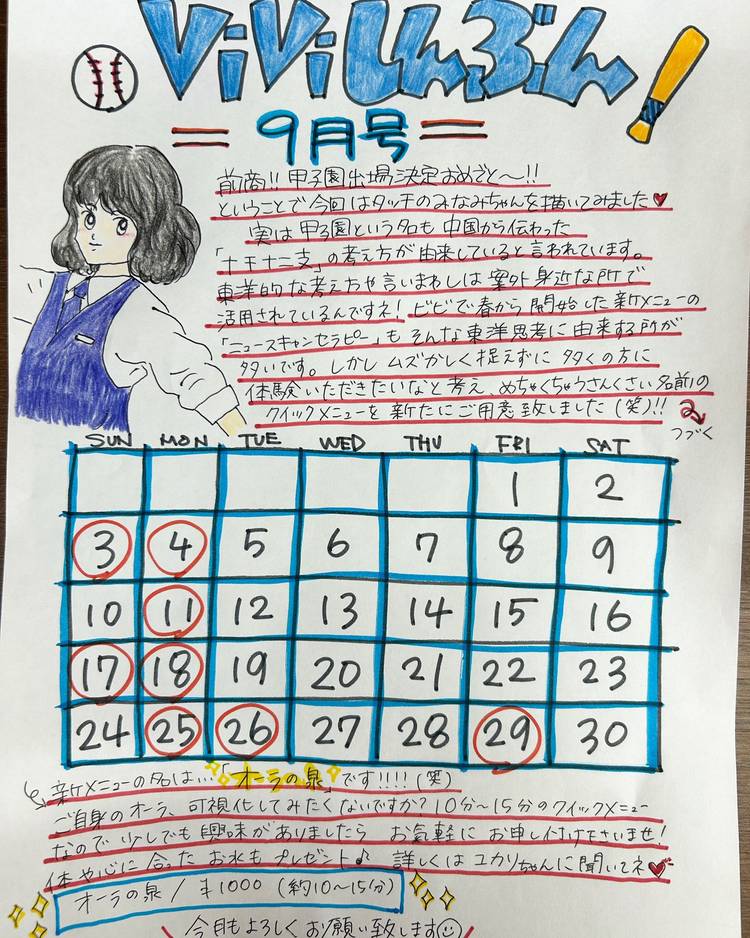 ViViしんぶん!
= 9月号 =
前商!! 甲子園出場決定おめでと〜!!
ということで今回はタッチのみなみちゃんを描いてみました♥
実は甲子園という名も中国から伝わった
「十干十二支」の考え方が由来していると言われています。
東洋的な考え方や言いまわしは案外身近な所で
活用されているんですネ! ビビで春から開始した新メニューの
「ニュースキャンセラピー」もそんな東洋思考に由来する所が
多いです。しかしムズかしく捉えずに多くの方に
体験いただきたいなと考え、めちゃくちゃうさんくさい名前の
クイックメニューを新たにご用意致しました(笑)!!
つづく
SUN MON TUE WED THU FRI SAT
1 2
3 4 5 6 7 8 9
10 11 12 13 14 15 16
17 18 19 20 21 22 23
24 25 26 27 28 29 30
新メニューの名は…「オーラの泉」です!!!!(笑)
ご自身のオーラ、可視化してみたくないですか? 10分〜15分のクイックメニュー
なので少しでも興味がありましたら お気軽にお申し付け下さいませ!
体や心に合ったお水もプレゼント♪ 詳しくはユカリちゃんに聞いてネ♥
オーラの泉 / ¥1000 (約10〜15分)
\ 今月もよろしくお願い致します☺ /